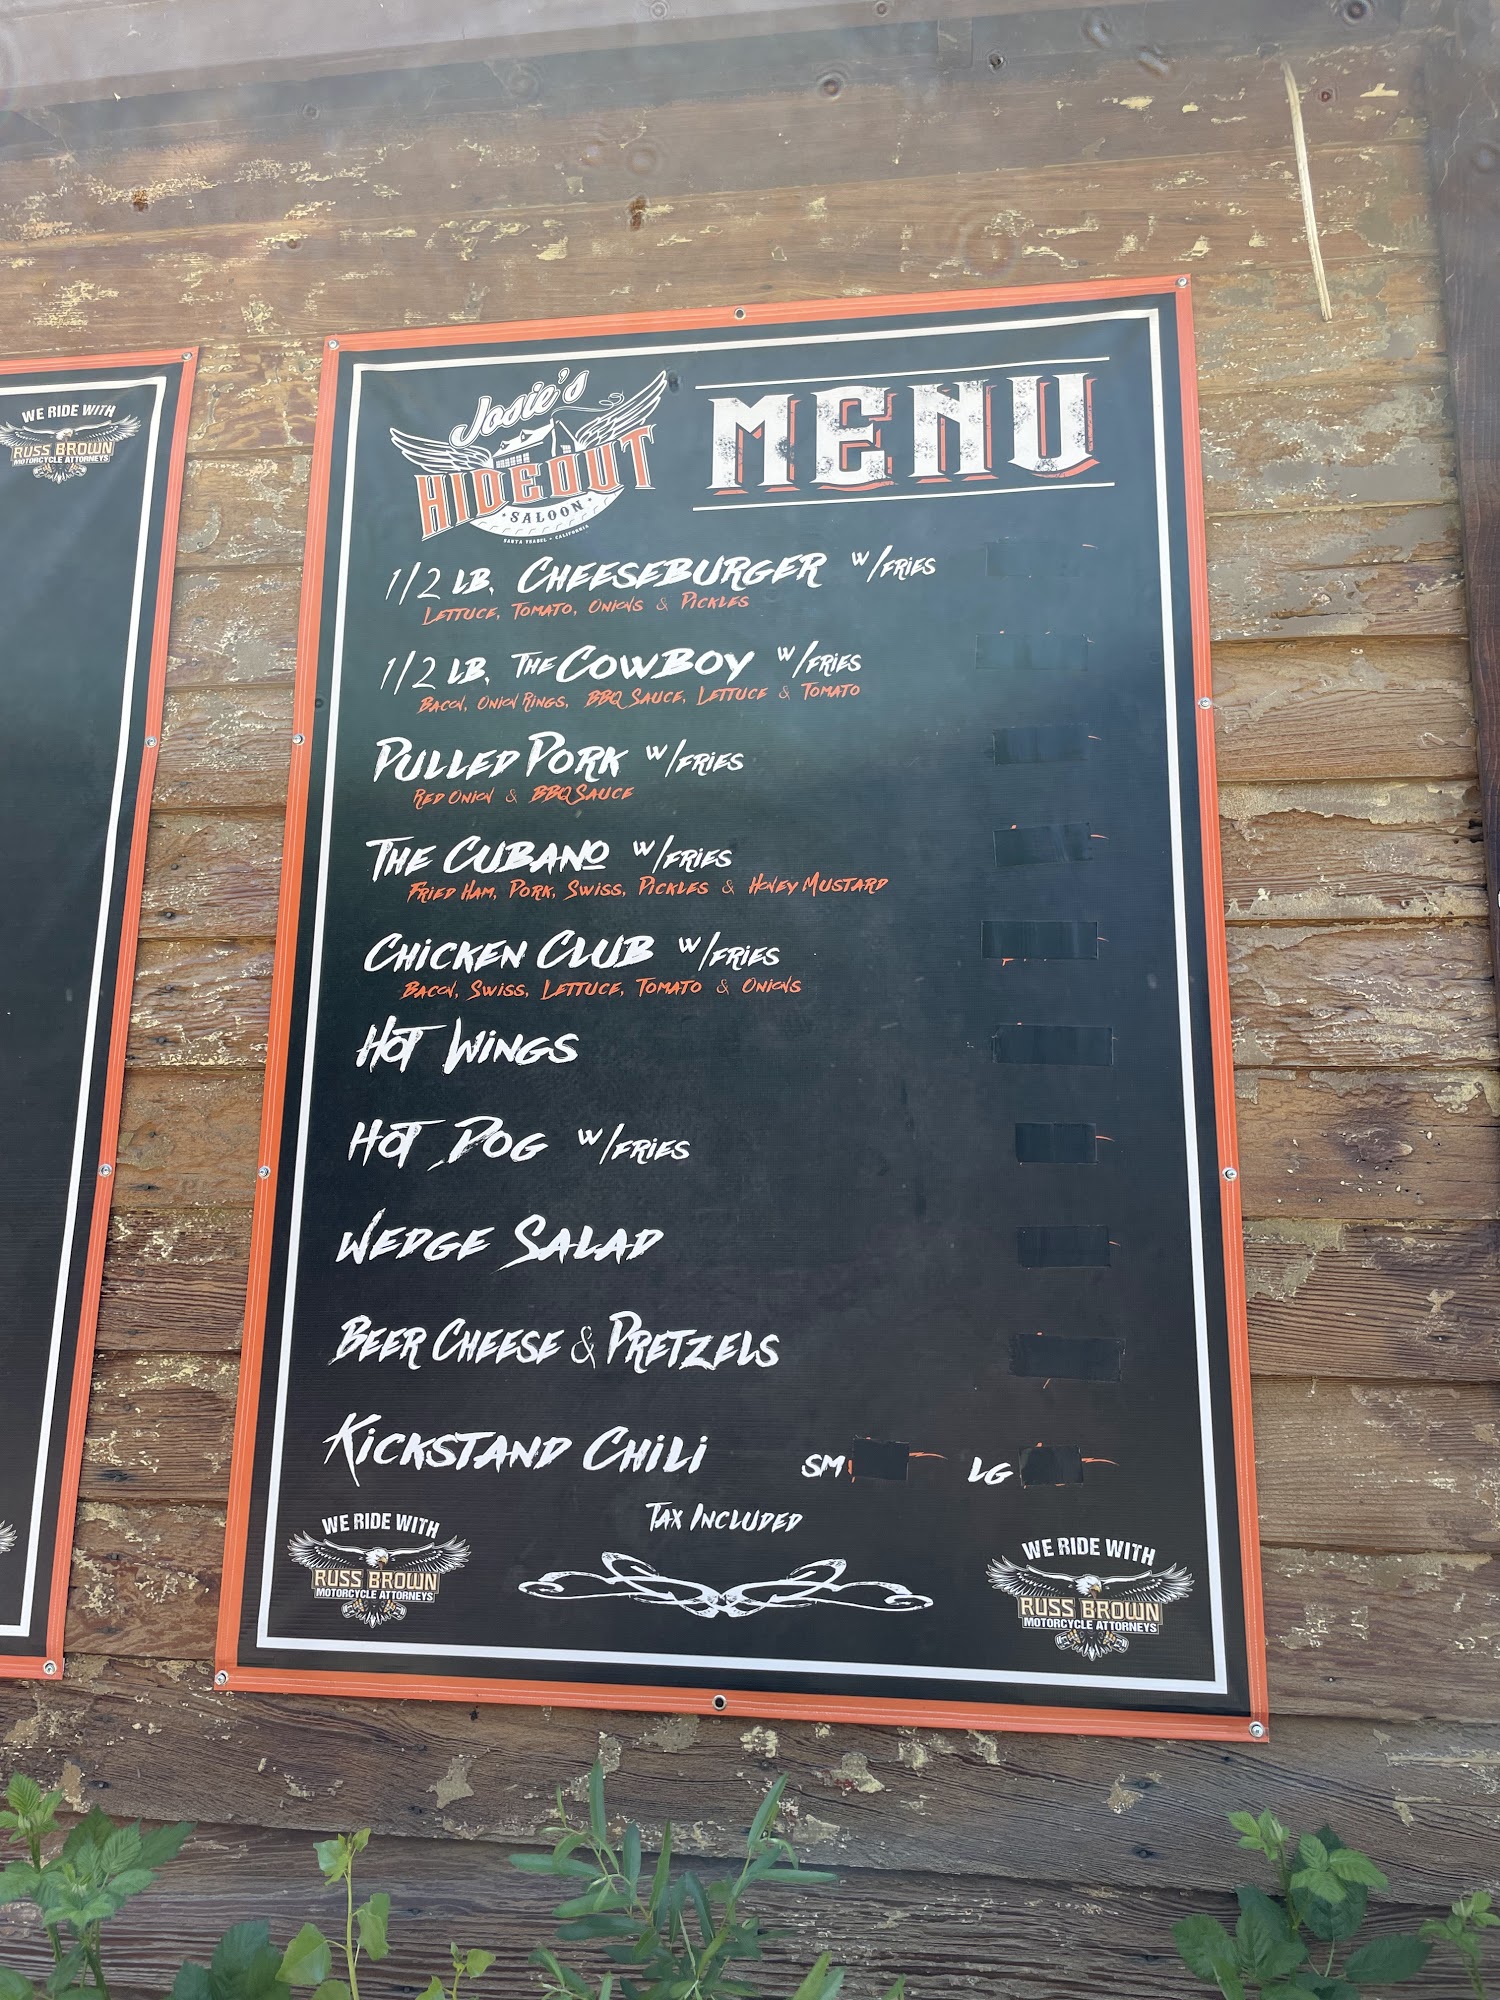 WE RIDE WITH
RUSS BROWN
MOTORCYCLE ATTORNEYS
Josie's
HIDEOUT
SALOON
SANTA YSABEL • CALIFORNIA
MENU
1/2 LB. CHEESEBURGER W/FRIES
LETTUCE, TOMATO, ONIONS & PICKLES
1/2 LB. THE COWBOY W/FRIES
BACON, ONION RINGS, BBQ SAUCE, LETTUCE & TOMATO
PULLED PORK W/FRIES
RED ONION & BBQ SAUCE
THE CUBANO W/FRIES
FRIED HAM, PORK, SWISS, PICKLES & HONEY MUSTARD
CHICKEN CLUB W/FRIES
BACON, SWISS, LETTUCE, TOMATO & ONIONS
HOT WINGS
HOT DOG W/FRIES
WEDGE SALAD
BEER CHEESE & PRETZELS
KICKSTAND CHILI SM LG
TAX INCLUDED
WE RIDE WITH
RUSS BROWN
MOTORCYCLE ATTORNEYS
WE RIDE WITH
RUSS BROWN
MOTORCYCLE ATTORNEYS